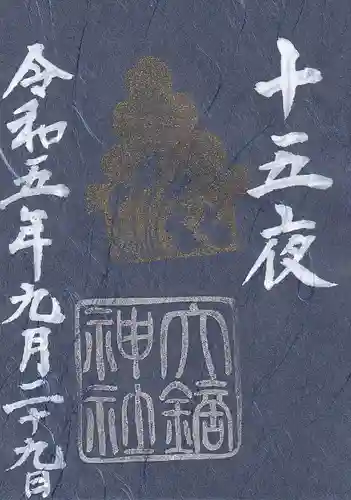 十五夜
大鏑
神社
令和五年九月二十九日